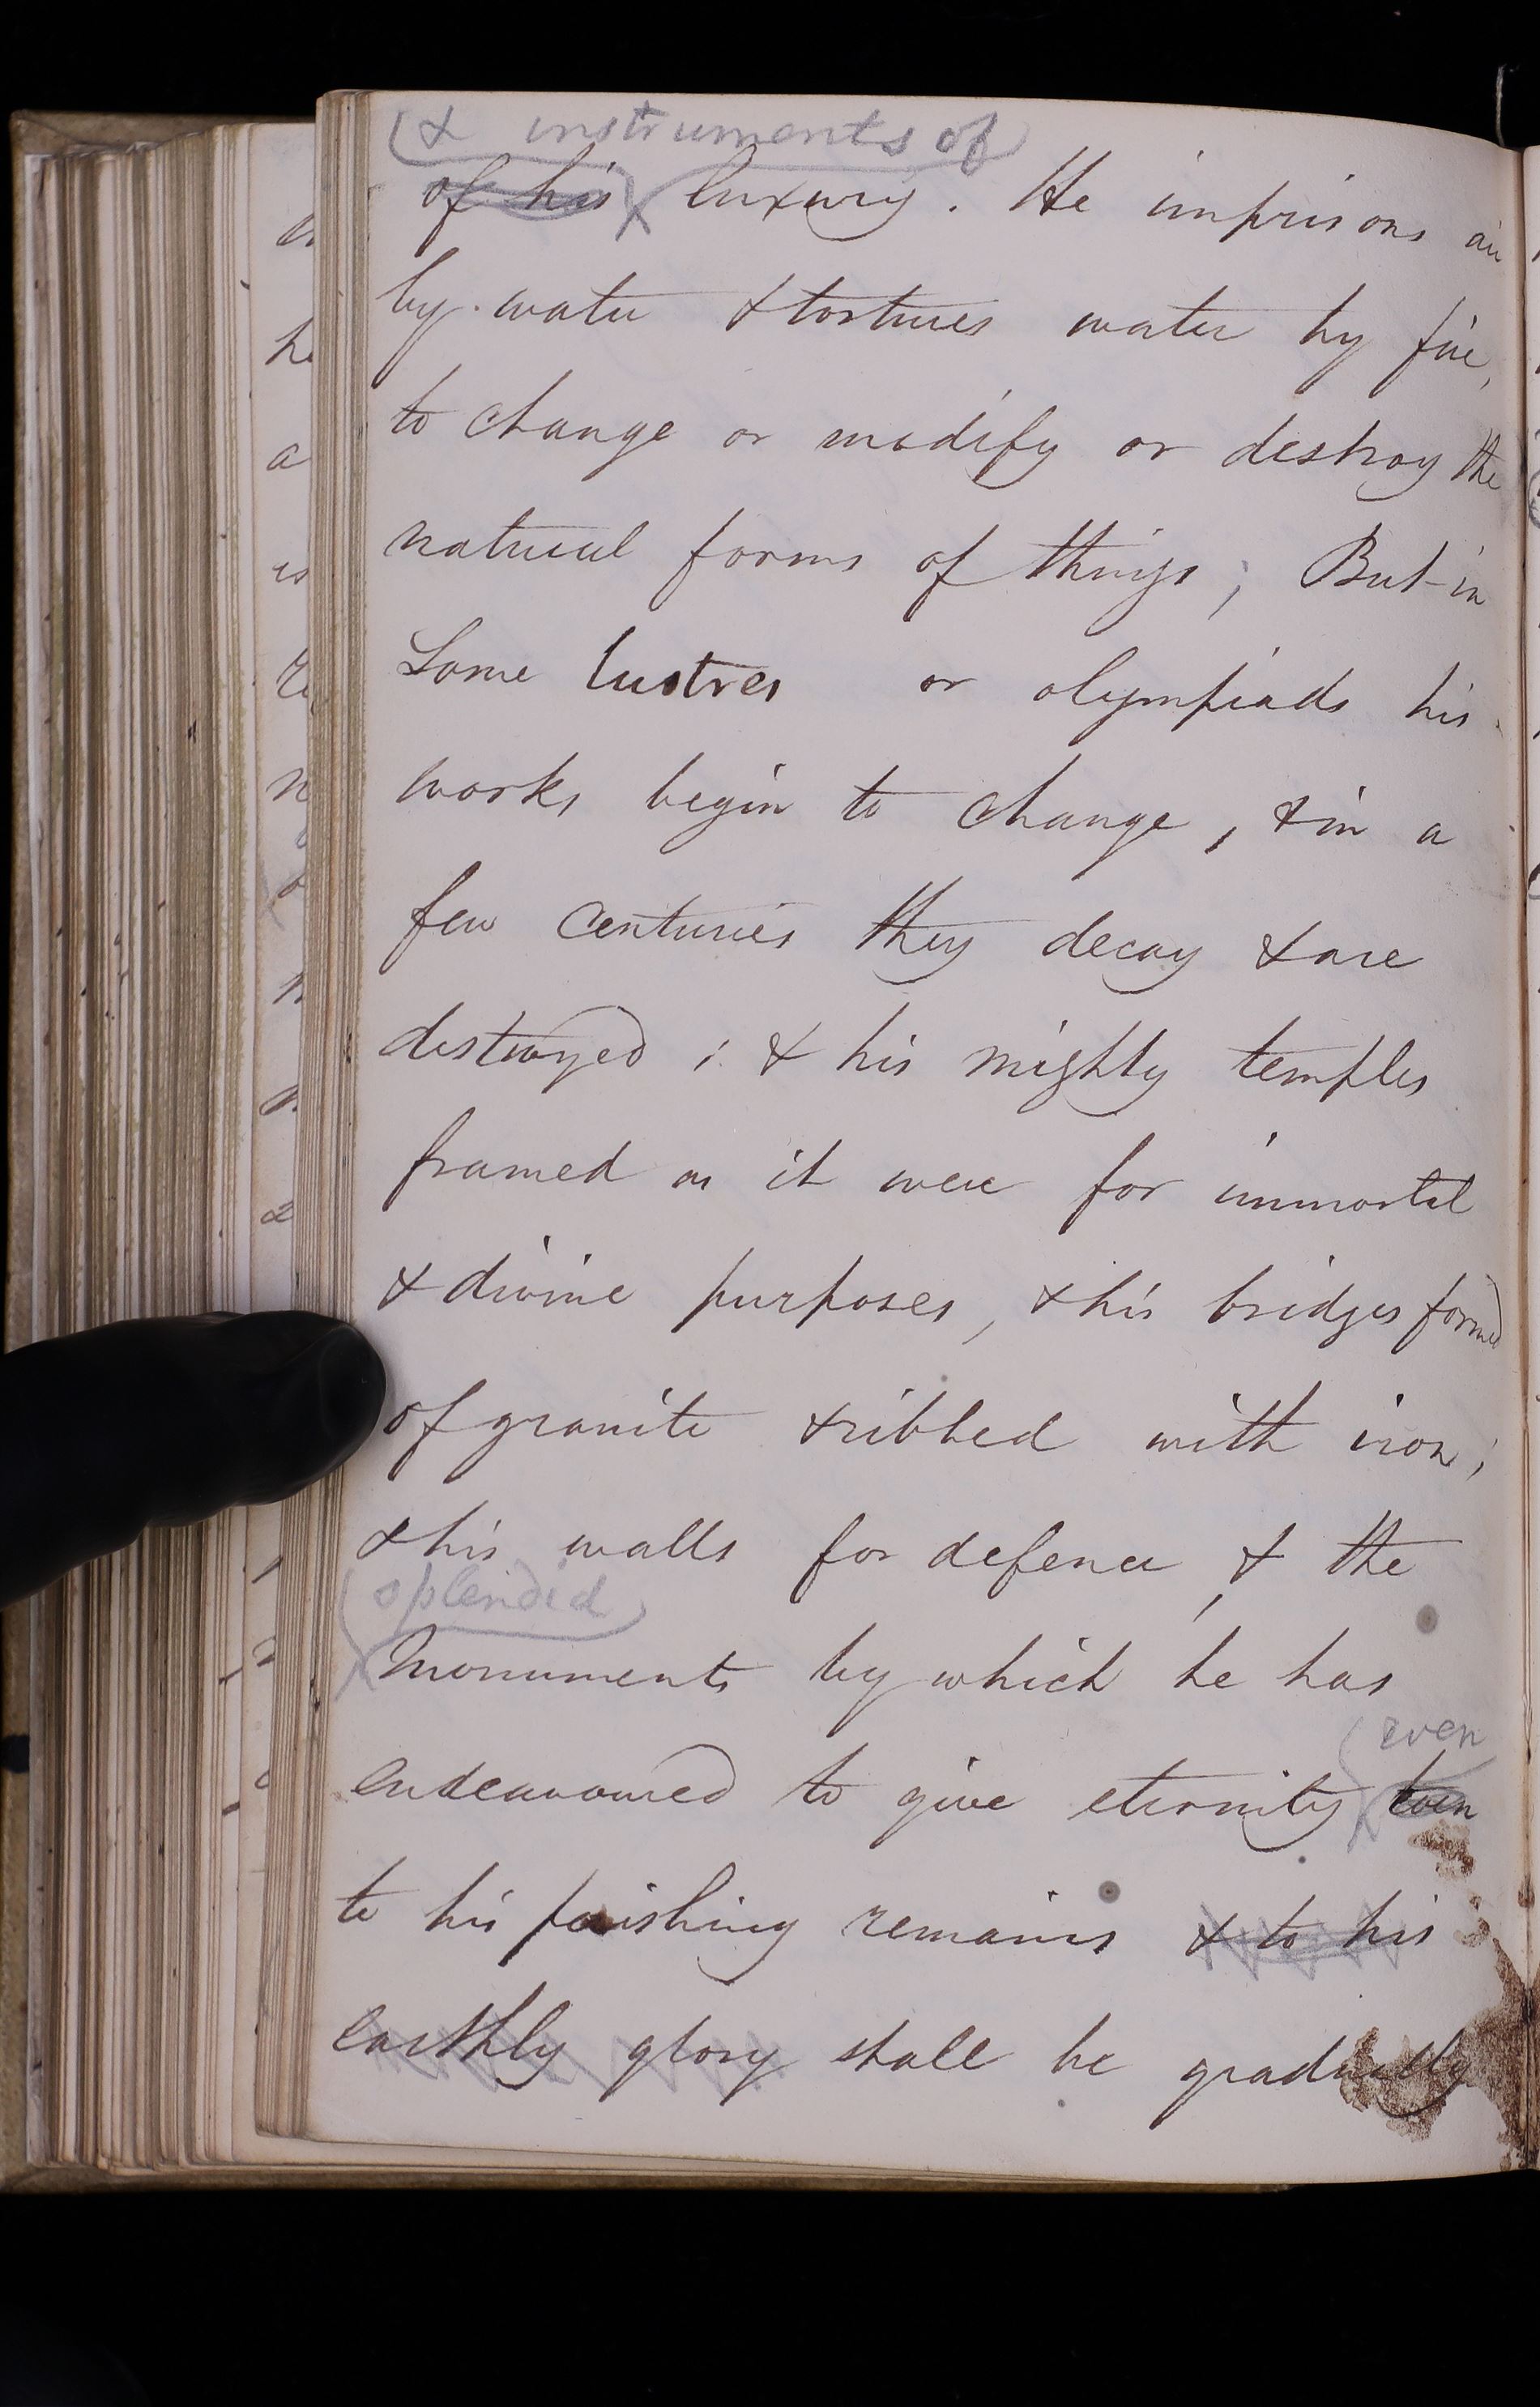 & instruments of
of his luxury. He imprisons air
by water & tortures water by fire,
to change or modify or destroy the
natural forms of things; But in
some lustres or olympiads his
works begin to change, & in a
few centuries they decay & are
destroyed; & his mighty temples
framed as it were for immortal
& divine purposes, & his bridges formed
of granite & ribbed with iron;
& his walls for defence, & the
splendid
monuments by which he has
even
endeavoured to give eternity even
to his perishing remains & to his
earthly glory shall be gradually